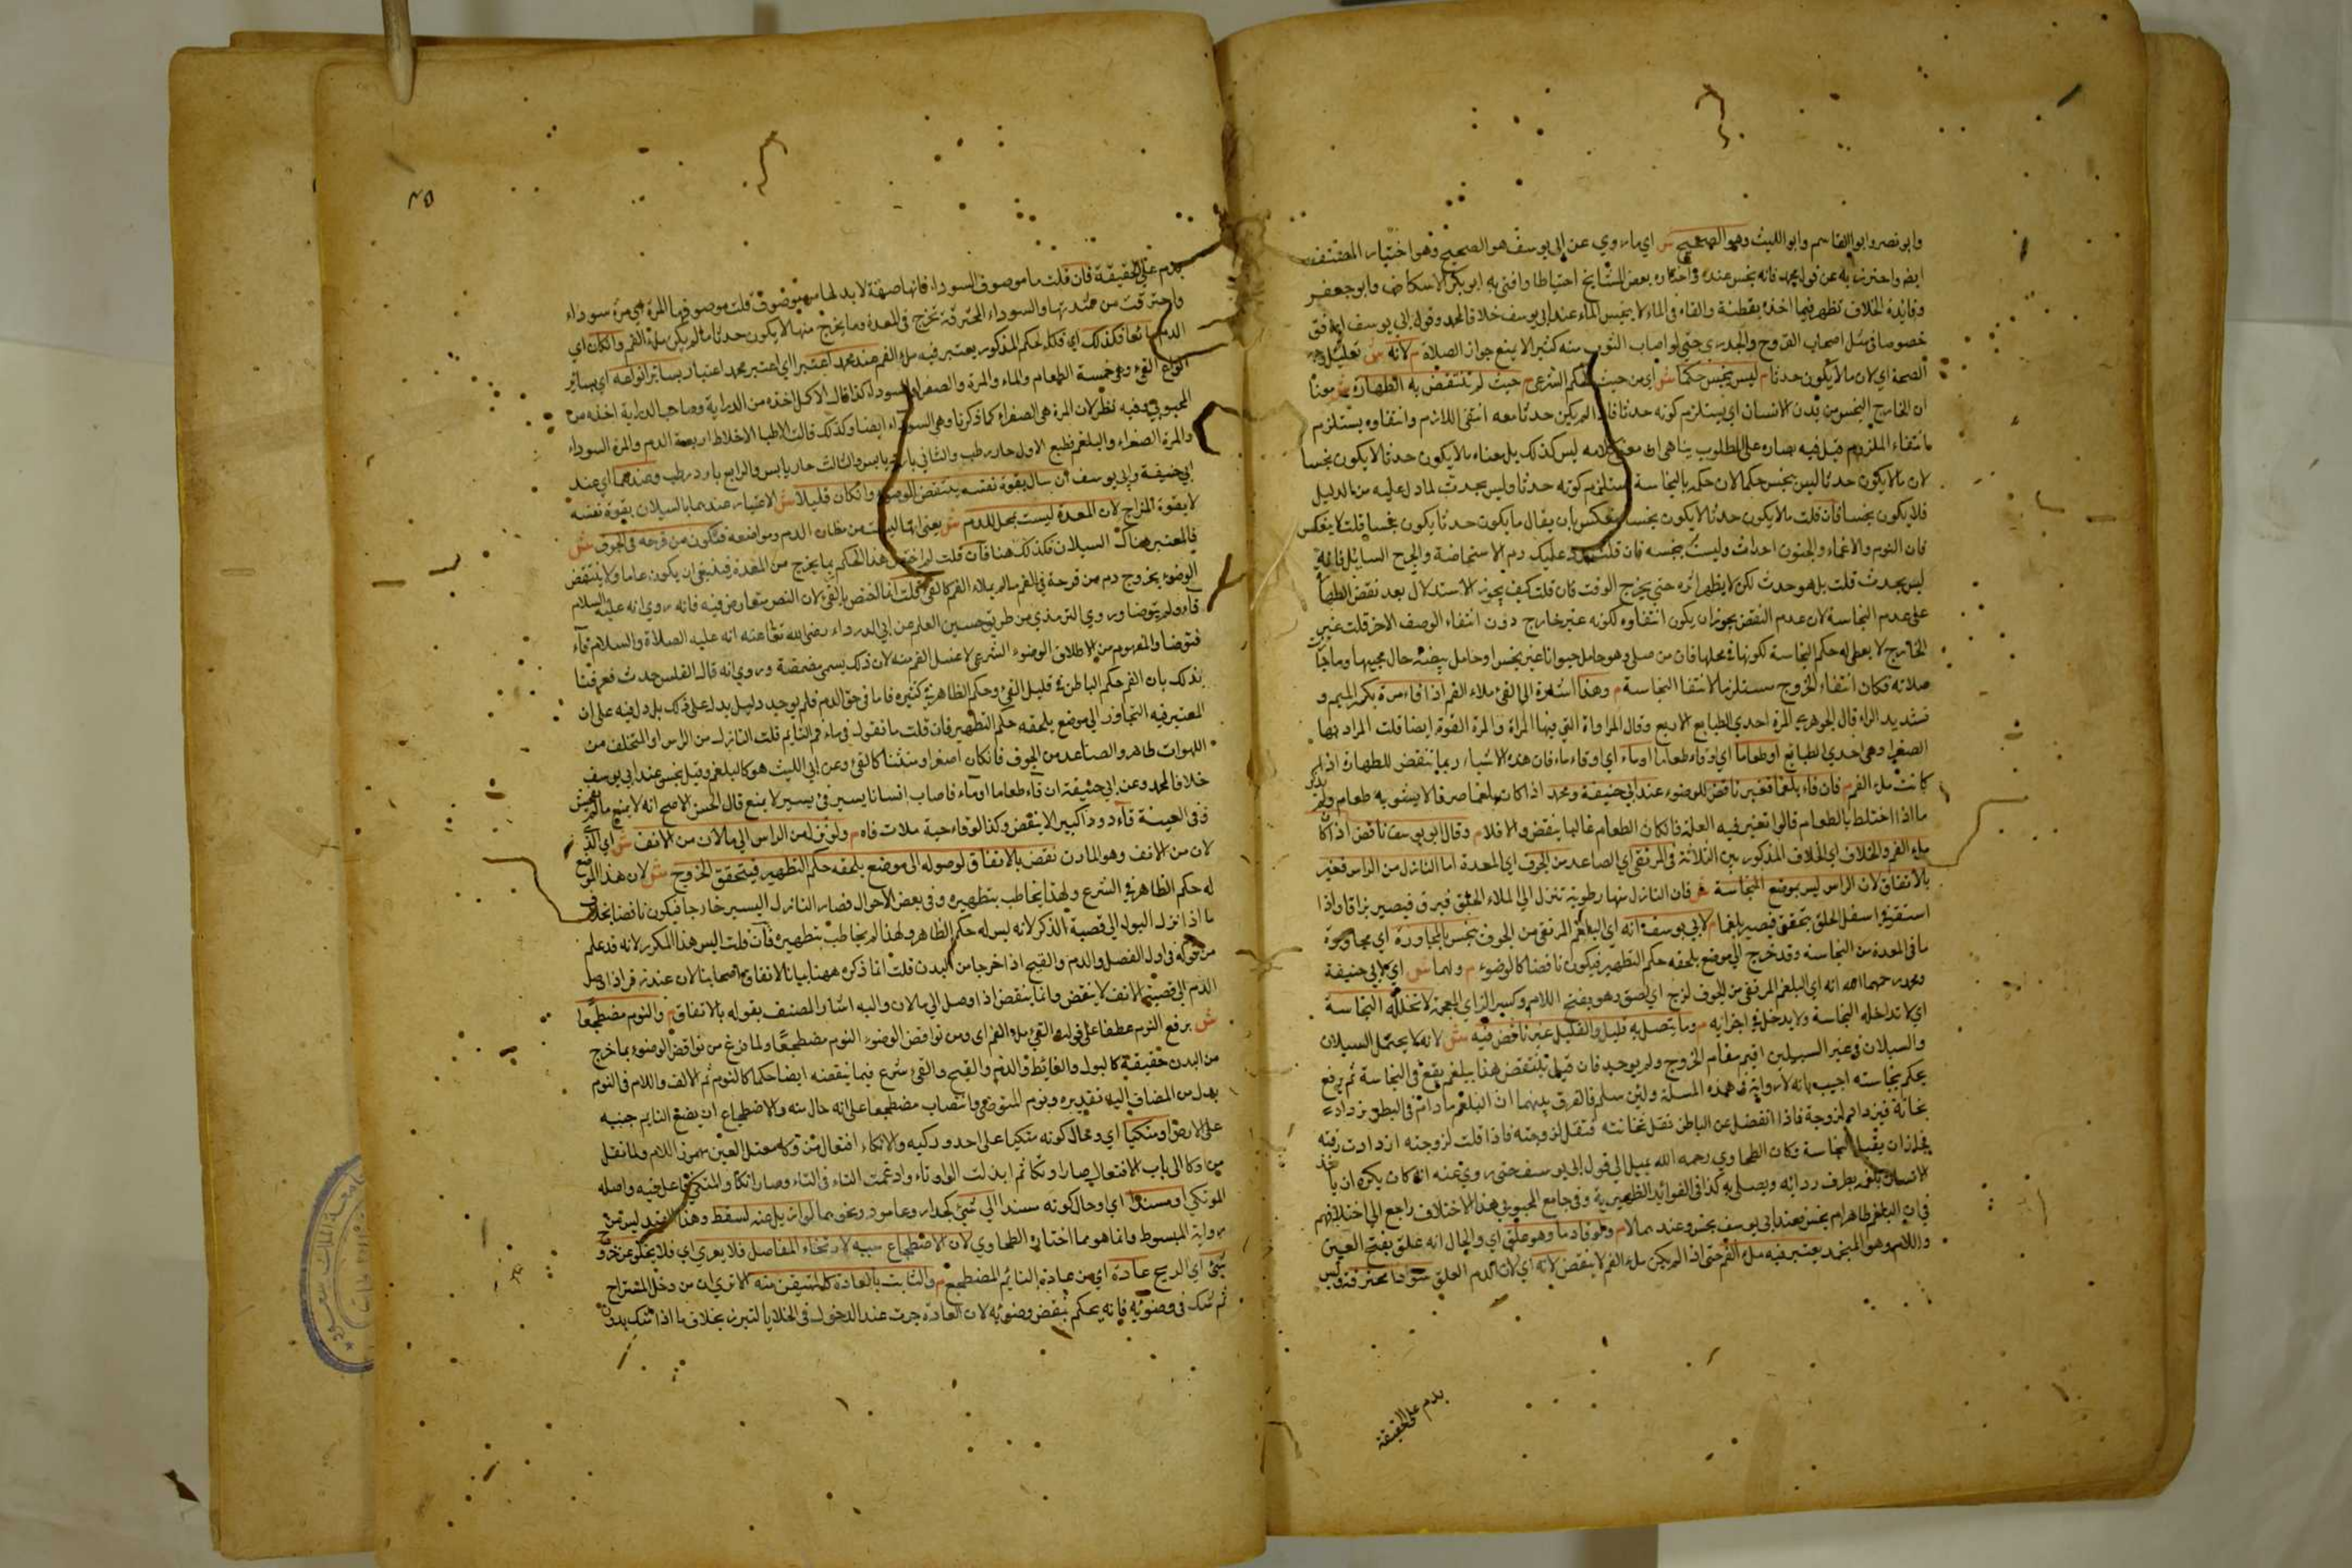 وابو نصر وابو القاسم وابو الليث وهو الصحيح ش اي ما روي عن ابي يوسف هو الصحيح وهو اختيار المصنف
ايضا واحترز به عن قول محمد فانه نجس عنده واختاره بعض المشايخ احتياطا وافتى به ابو بكر الاسكاف وابو جعفر
وفائدة الخلاف تظهر فيما اخذه بقطنة والقاه في الماء لا ينجس الماء عند ابي يوسف خلافا لمحمد وقول ابي يوسف ارفق
خصوصا في مثل اصحاب القروح والجدري حتى لو اصاب الثوب منه كثير لا يمنع جواز الصلاة م لانه ش تعليل وجه
الصحة اي لان ما لا يكون حدثا م ليس بنجس حكما ش اي من حيث الحكم الشرعي م حيث لم تنتقض به الطهارة ش
ان الخارج النجس من بدن الانسان اي يستلزم كونه حدثا فاذا لم يكن حدثا معه انتفى اللازم وانتفاوه يستلزم
انتفاء الملزوم قيل فيه مصادره على المطلوب بناه على ان معنى كلامه ليس كذلك بل معناه ما لا يكون حدثا لا يكون نجسا
لان ما لا يكون حدثا ليس بنجس حكما لان حكم بالنجاسة يستلزم كونه حدثا وليس بحدث لما دل عليه من الدليل
فلا يكون نجسا فان قلت ما لا يكون حدثا لا يكون نجسا ينعكس بان يقال ما يكون حدثا يكون نجسا قلت لا ينعكس
فان النوم والاغماء والجنون احداث وليست بنجسة فان قلت يرد عليك دم الاستحاضة والجرح السايل فانه
ليس بحدث قلت بل هو حدث لكن لا يظهر اثره حتى يخرج الوقت فان قلت كيف يجوز الاستدلال بعد نقض الطهارة
على عدم النجاسة لان عدم النقض يجوز ان يكون انتفاوه لكونه غير خارج دون انتفاء الوصف الاخر قلت غير
الخارج لا يعطى له حكم النجاسة لكونها في محلها فان من صلى وهو حامل حيوانا غير نجس او حامل بيضة حال محيها دما جازت
صلاته فكان انتفاء الخروج مستلزما لانتفا النجاسة م وهذا اشارة الى القيء ملاء الفم اذا قاء مرة بكسر الميم و
تشديد الراء قال الجوهري المرة احدي الطبايع الاربع وقال المرارة التي فيها المرة والمرة القوة ايضا قلت المراد بها
الصفرا وهي احدي الطبايع او طعاما اي او قاء طعاما او ماء اي او قاء ماء فان هذه الاشياء ربما تنقض للطهارة اذا
كانت ملء الفم م فان قاء بلغما فغير ناقض للوضوء عند ابي حنيفة ومحمد اذا كان بلغما صرفا لا يشوبه طعام ولم يذكر
ما اذا اختلط بالطعام قالوا تعتبر فيه الغلبة فان كان الطعام غالبا ينقض والا فلا م وقال ابو يوسف ناقض اذا كان
ملء الفم والخلاف اي الخلاف المذكور بين الثلاثة في المرتقي اي الصاعد من الجوف اي المعدة اما النازل من الراس فغير
بالاتفاق لان الراس ليس بموضع النجاسة ش فان النازل منها رطوبة تنزل الى فيرق فيصير بزاقا واذا
استقر في اسفل الحلق يتحقق فيصير بلغما م لابي يوسف انه اي البلغم المرتقي من الجوف نجس بالمجاورة اي مجاورة
ما في المعدة من النجاسة وقد خرج الى موضع يلحقه حكم التطهير فيكون ناقضا كالوضوء م ولهما ش اي لابي حنيفة
ومحمد رحمهما الله انه اي البلغم المرتقي من الجوف لزج اي لصق وهو بفتح اللام وكسر الزاي المعجمة لا تتخلله النجاسة
اي لا تداخله النجاسة ولا يدخل في اجزائه م وما يتصل به قليل والقليل غير ناقض فيه ش لانه لا يحتمل السيلان
والسيلان في غير السبيلين اقيم مقام الخروج ولم يوجد فان قيل ينتقض هذا ببلغم يقع في النجاسة ثم يرفع
يحكم بنجاسته اجيب بانه لا رواية في هذه المسلة ولئن سلم فالفرق بينهما ان البلغم ما دام في البطن يزداد
ثخانة فيزداد لزوجة فاذا انفصل عن الباطن تقل ثخانته فتقل لزوجته فاذا قلت لزوجته ازدادت رقته
فجاز ان يقبل النجاسة وكان الطحاوي رحمه الله يميل الى قول ابي يوسف حتى روي عنه انه كان يكره ان ياخذ
الانسان بلغم بطرف ردائه ويصلي به كذا في الفوائد الظهيرية وفي جامع المحبوبي هذا الاختلاف راجع الى اختلافهم
في ان البلغم طاهر ام نجس فعند ابي يوسف نجس وعندهما لا م ولو قاء دما وهو علق اي والحال انه علق بفتح العين
واللام وهو المنجمد يعتبر فيه ملء الفم حتى اذا لم يكن ملء الفم لا ينقض لانه اي لان الدم العلق سوداء محترقة وليس
بدم على الحقيقة
٤٥
بدم على الحقيقة فان قلت ما موصوف السوداء فانها صفة لا بد لها من موصوف قلت موصوفها المرة اي مرة سوداء
واحترقت من شدتها والسوداء المحترقة تخرج في المعدة وما يخرج منها لا يكون حدثا ما لم يكن ملء الفم وان كان اي
الدم مائعا فكذلك اي فكذا الحكم المذكور يعتبر فيه ملء الفم عند محمد اعتبارا اي اعتبر محمد اعتبار بسائر انواعه اي بسائر
انواع القيء وهي خمسة الطعام والماء والمرة والصفرا والسوداء كذا قال الاكمل اخذه من الدراية وصاحب الدراية اخذه من
المحبوبي وفيه نظر لان المرة هي الصفراء كما ذكرنا وهي السوداء ايضا وكذلك قالت الاطبا الاخلاط اربعة الدم والمرة السوداء
والمرة الصفراء والبلغم فطبع الاول حار رطب والثاني بارد يابس والثالث حار يابس والرابع بارد رطب وعندهما اي عند
ابي حنيفة وابي يوسف ان سال بقوة نفسه ينتقض الوضوء وان كان قليلا ش الاعتبار عندهما بالسيلان بقوة نفسه
لا بقوة المزاج لان المعدة ليست بمحل للدم ش يعني انها ليست من مظان الدم ومواضعه فتكون من قرحه في الجوف ش
فالمعتبر هناك السيلان فكذلك هنا فان قلت لم اختص هذا الحكم بما يخرج من المعدة فينبغي ان يكون عاما ولا ينتقض
الوضوء بخروج دم من قرحة في الفم ما لم يملاء الفم كالقيء قلت انما اختص بالقيء لان النص متعارض فيه فانه روي انه عليه السلام
قاء ولم يتوضا وروي الترمذي من طريق حسين المعلم عن ابي الدرداء رضي الله تعا عنه انه عليه الصلاة والسلام قاء
فتوضا والمفهوم من الاطلاق الوضوء الشرعي لا غسل الفم منه لان ذلك يسمى مضمضة وروي انه قال القلس حدث فعرفنا
بذلك بان الفم حكم الباطن في قليل القيء وحكم الظاهر في كثيره فاما في حق الدم فلم يوجد دليل يدل على ذلك بل دل فيه على ان
المعتبر فيه التجاوز الى موضع يلحقه حكم التطهير فان قلت ما تقول في ماء فم النايم قلت النازل من الراس او المتخلف من
اللهوات طاهر والصاعد من الجوف فان كان اصفر او منتنا كالقيء وعن ابي الليث هو كالبلغم وقيل نجس عند ابي يوسف
خلافا لمحمد وعن ابي حنيفة ان قاء طعاما او ماء فاصاب انسانا يسير في يسير لا يمنع قال الحسن الاصح انه لا يمنع ما لم يفحش
وفي العيينة قاء دودا كبير لا ينقض وكذا لو قاء حية ملات فاه م ولو نزل من الراس الى ما لان من الانف ش اي الذي
لان من الانف وهو المارن نقض بالاتفاق لوصوله الى موضع يلحقه حكم التطهير فيتحقق الخروج ش لان هذا الموضع
له حكم الظاهر في الشرع ولهذا يخاطب بتطهيره وفي بعض الاحوال فصار النازل اليسير خارجا فيكون ناقضا بخلاف
ما اذا نزل البول الى قصبة الذكر لانه ليس له حكم الظاهر ولهذا لم يخاطب بتطهيره فان قلت اليس هذا المكرر لانه قد علم
من قوله في اول الفصل والدم والقيح اذا خرجا من البدن قلت انما ذكره ههنا بيانا لاتفاق اصحابنا لان عند زفر اذا وصل
الدم الى قصبة الانف لا ينقض وانما ينقض اذا وصل الى ما لان واليه اشار المصنف بقوله بالاتفاق م والنوم مضطجعا
ش برفع النوم عطفا على قوله القيء ملء الفم اي ومن نواقض الوضوء النوم مضطجعا ولما فرغ من نواقض الوضوء بما خرج
من البدن حقيقة كالبول والغائط والدم والقيح والقيء شرع فيما ينقضه ايضا حكما كالنوم ثم الالف واللام في النوم
بدل من المضاف اليه تقديره ونوم المتوضي وانتصاب مضطجعا على انه حال منه والاضطجاع ان يضع النايم جنبه
على الارض او متكيا اي وحال كونه متكيا على احد وركيه والاتكاء افتعال من وكا معتل العين مهموز اللام ولما نقل
من وكا الى باب الافتعال صار اوتكا ثم ابدلت الواو تاء وادغمت التاء في التاء وصار اتكا والمتكي فاعل فيه واصله
الموتكي او مستندا اي او حال كونه مسندا الى شيء كجدار وعامود ونحوهما لو ازيل عنه لسقط وهذا القيد ليس من
رواية المبسوط وانما هو مما اختاره الطحاوي لان الاضطجاع سبب لارتخاء المفاصل فلا يعري اي فلا يخلو عن خروج
شيء اي الريح عادة اي من عادة النائم المضطجع م والثابت بالعادة كالمتيقن منه الا تري ان من دخل المستراح
ثم شك في وضوئه فانه يحكم بنقض وضوئه لان العادة جرت عند الدخول في الخلايا لتبرز بخلاف ما اذا شك بدون